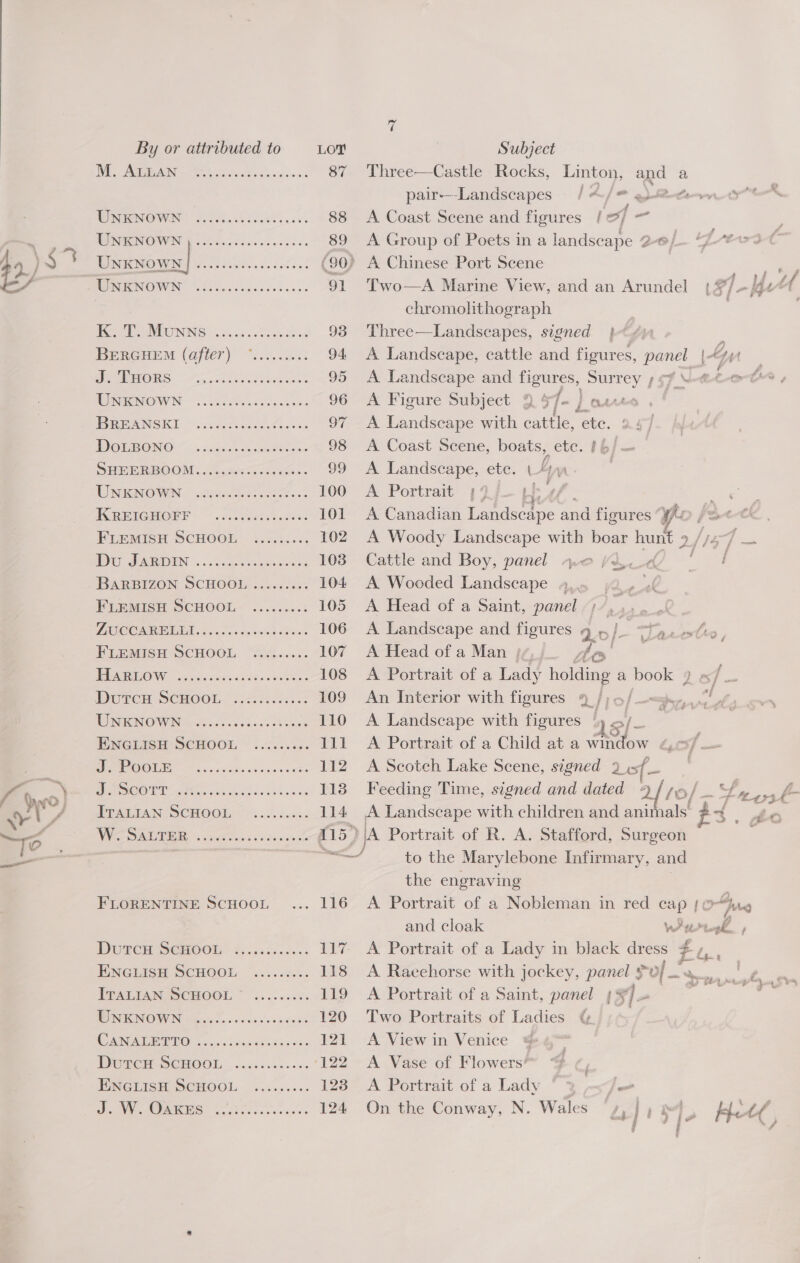 7
By or attributed to LOT Subject
M. ALLAN ..................... 87 Three—Castle Rocks, Linton, and a
pair—Landscapes
UNKNOWN ..................... 88 A Coast Scene and figures
UNKNOWN ..................... 89 A Group of Poets in a landscape
UNKNOWN ..................... (90) A Chinese Port Scene
UNKNOWN ..................... 91 Two—A Marine View, and an Arundel
chromolithograph
K. T. MUNNS .................. 93 Three—Landscapes, signed
BERGHEM (after) ......... 94 A Landscape, cattle and figures, panel
J. THORS ..................... 95 A Landscape and figures, Surrey
UNKNOWN ..................... 96 A Figure Subject
BREANSKI ..................... 97 A Landscape with cattle, etc.
DOLBONO ..................... 98 A Coast Scene, boats, etc.
SHEERBOOM .................. 99 A Landscape, etc.
UNKNOWN ..................... 100 A Portrait
KREIGHOFF .................. 101 A Canadian Landscape and figures
FLEMISH SCHOOL ......... 102 A Woody Landscape with boar hunt
DU JARDIN .................. 103 Cattle and Boy, panel
BARBIZON SCHOOL ......... 104 A Wooded Landscape
FLEMISH SCHOOL ......... 105 A Head of a Saint, panel
ZUCCARELLI .................. 106 A Landscape and figures
FLEMISH SCHOOL ......... 107 A Head of a Man
HARLOW ..................... 108 A Portrait of a Lady holding a book
DUTCH SCHOOL ............ 109 An Interior with figures
UNKNOWN ..................... 110 A Landscape with figures
ENGLISH SCHOOL ......... 111 A Portrait of a Child at a window
J. POOLE ..................... 112 A Scotch Lake Scene, signed
J. SCOTT ..................... 113 Feeding Time, signed and dated
ITALIAN SCHOOL ......... 114 A Landscape with children and animals
W. SALTER .................. 115) A Portrait of R. A. Stafford, Surgeon
to the Marylebone Infirmary, and
the engraving
FLORENTINE SCHOOL ... 116 A Portrait of a Nobleman in red cap
and cloak
DUTCH SCHOOL ............ 117 A Portrait of a Lady in black dress
ENGLISH SCHOOL ......... 118 A Racehorse with jockey, panel
ITALIAN SCHOOL ......... 119 A Portrait of a Saint, panel
UNKNOWN ..................... 120 Two Portraits of Ladies
CANALETTO .................. 121 A View in Venice
DUTCH SCHOOL ............ 122 A Vase of Flowers
ENGLISH SCHOOL ......... 123 A Portrait of a Lady
J. W. OAKES .................. 124 On the Conway, N. Wales